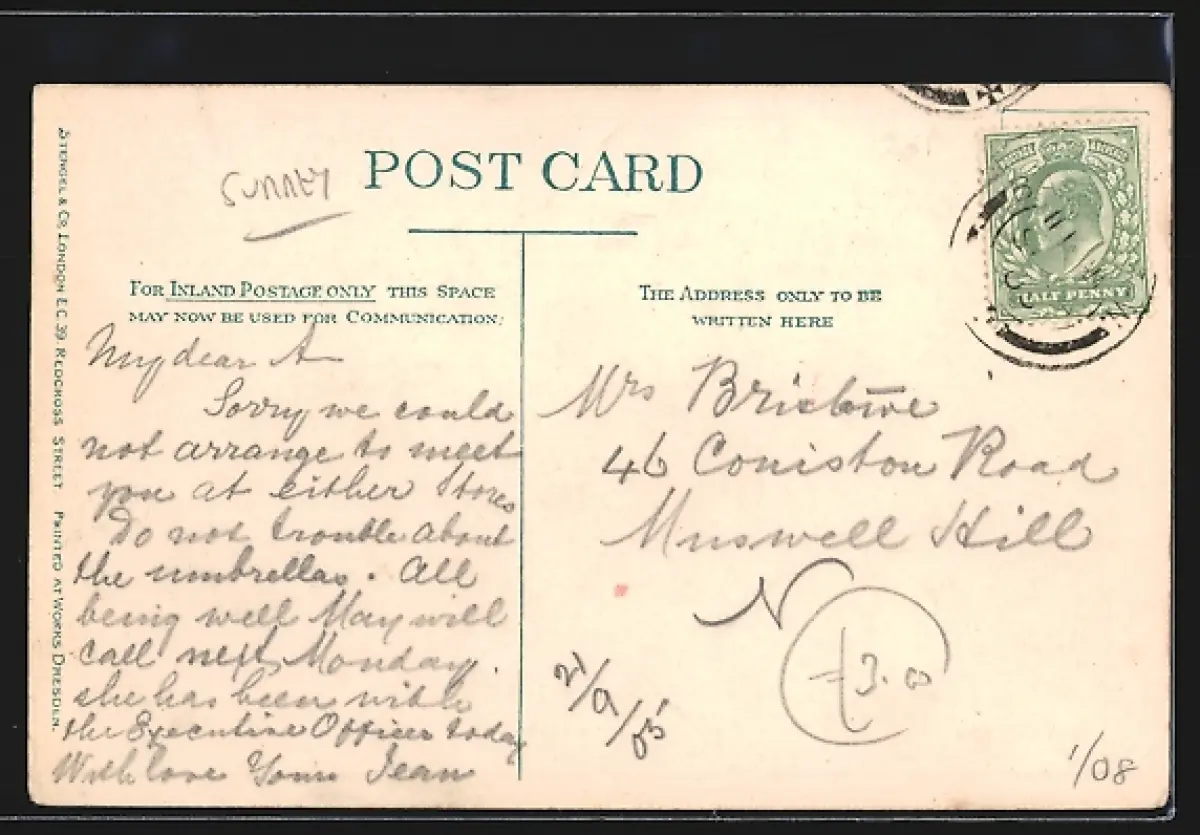 SURREY
POST CARD
STENGEL & Co, LONDON E.C. 39, REDCROSS STREET PRINTED AT WORKS DRESDEN.
FOR INLAND POSTAGE ONLY THIS SPACE
MAY NOW BE USED FOR COMMUNICATION;
My dear A
Sorry we could
not arrange to meet
you at either Stores
Do not trouble about
the umbrellas. All
being well May will
call next Monday.
she has been with
the Executive Officer today
With love Your Jean
THE ADDRESS ONLY TO BE
WRITTEN HERE
HALF PENNY
Mrs Bristowe
46 Coniston Road
Muswell Hill
N
21/9/05
£3.0
1/08